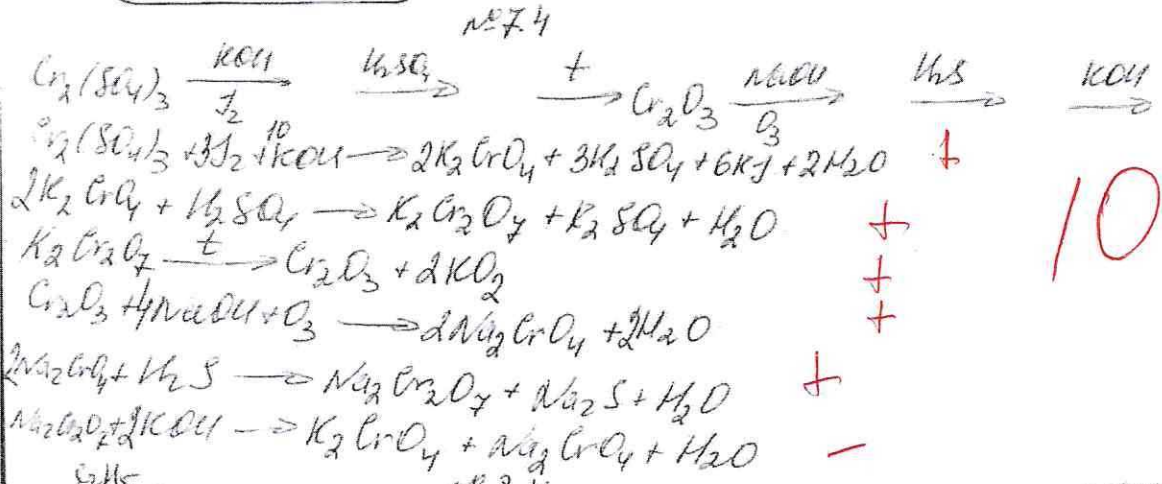 №7.4
Cr₂(SO₄)₃ —KOH/J₂→ —H₂SO₄→ —t→ Cr₂O₃ —NaOH/O₃→ —H₂S→ —KOH→
Cr₂(SO₄)₃ + 3J₂ + 10KOH → 2K₂CrO₄ + 3K₂SO₄ + 6KJ + 2H₂O +
2K₂CrO₄ + H₂SO₄ → K₂Cr₂O₇ + K₂SO₄ + H₂O + 10
K₂Cr₂O₇ —t→ Cr₂O₃ + 2KO₂ +
Cr₂O₃ + 4NaOH + O₃ → 2Na₂CrO₄ + 2H₂O +
2Na₂CrO₄ + H₂S → Na₂Cr₂O₇ + Na₂S + H₂O +
Na₂Cr₂O₇ + 2KOH → K₂CrO₄ + Na₂CrO₄ + H₂O −